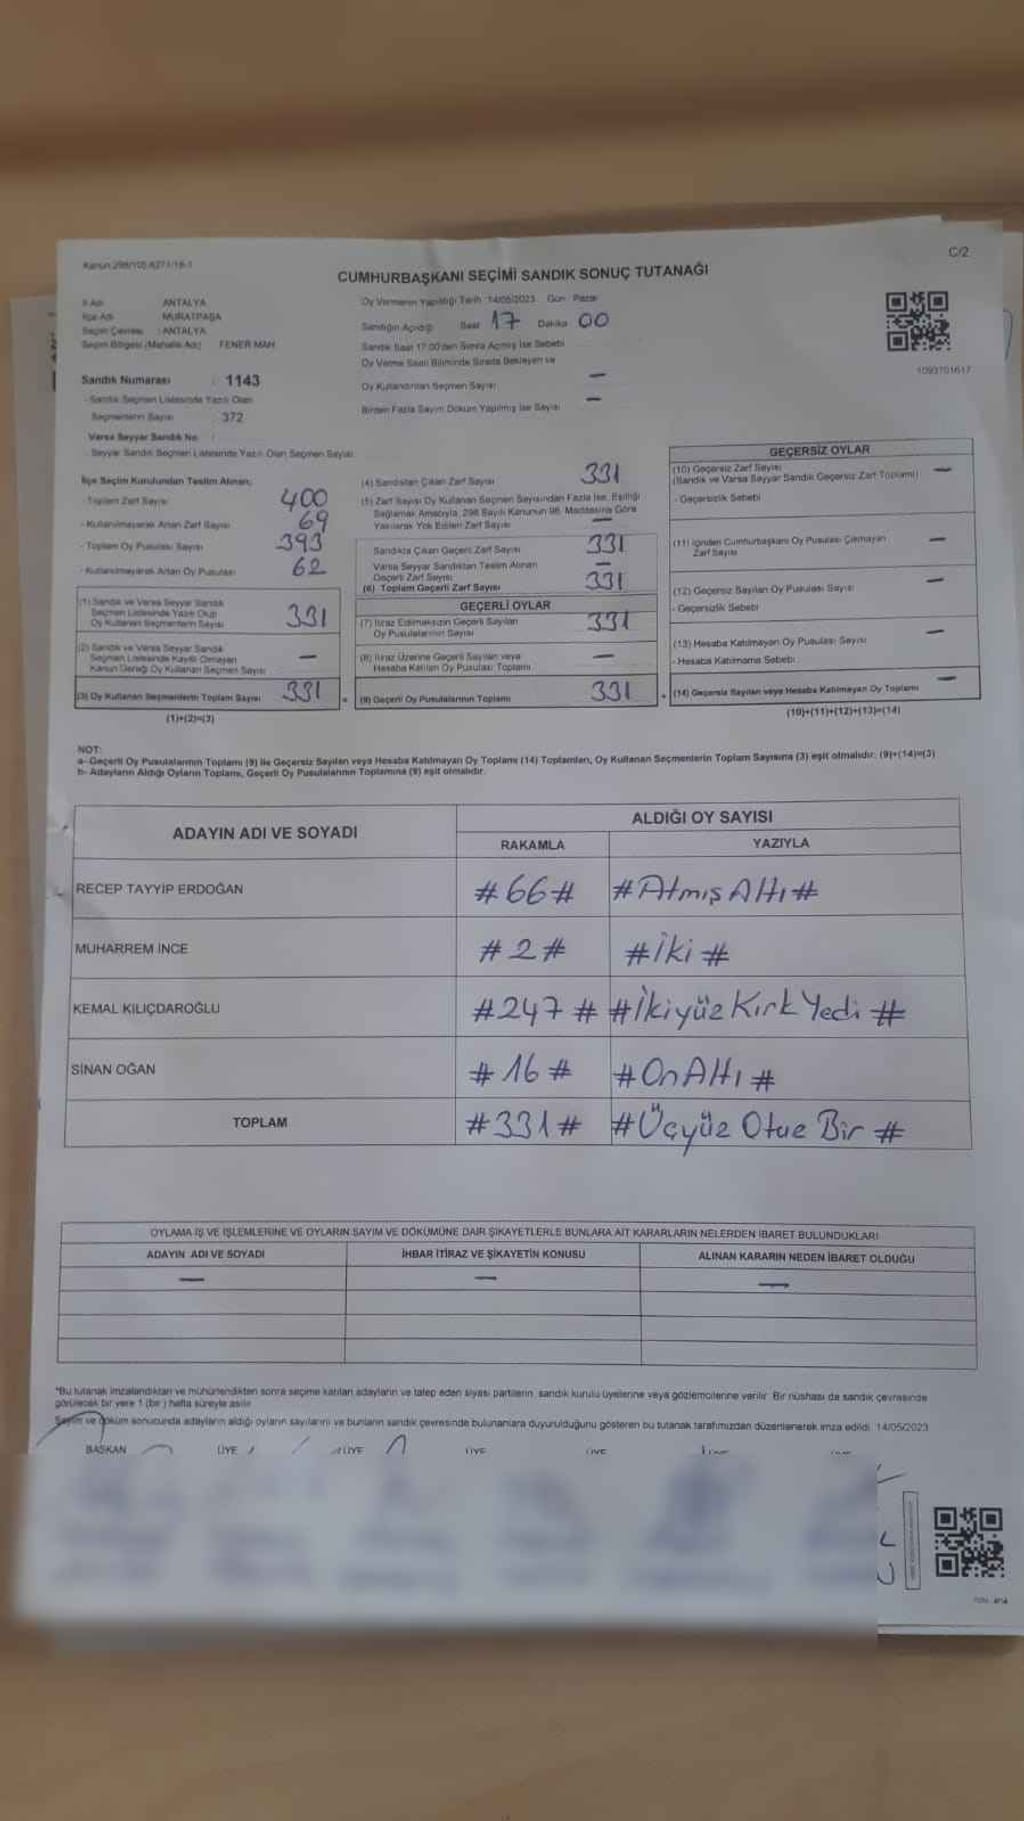 Kanun:298/105-6271/16-1
C/2
CUMHURBAŞKANI SEÇİMİ SANDIK SONUÇ TUTANAĞI
İl Adı : ANTALYA
İlçe Adı : MURATPAŞA
Seçim Çevresi : ANTALYA
Seçim Bölgesi (Mahalle Adı) : FENER MAH
Sandık Numarası : 1143
- Sandık Seçmen Listesinde Yazılı Olan
Seçmenlerin Sayısı : 372
Varsa Seyyar Sandık No :
- Seyyar Sandık Seçmen Listesinde Yazılı Olan Seçmen Sayısı
Oy Vermenin Yapıldığı Tarih : 14/05/2023 Gün : Pazar
Sandığın Açıldığı Saat 17 Dakika 00
Sandık Saat 17:00'den Sonra Açılmış İse Sebebi
Oy Verme Saati Bitiminde Sırada Bekleyen ve
Oy Kullandırılan Seçmen Sayısı —
Birden Fazla Sayım Döküm Yapılmış İse Sayısı —
1093701617
İlçe Seçim Kurulundan Teslim Alınan;
- Toplam Zarf Sayısı 400
- Kullanılmayarak Artan Zarf Sayısı 69
- Toplam Oy Pusulası Sayısı 393
- Kullanılmayarak Artan Oy Pusulası 62
(1) Sandık ve Varsa Seyyar Sandık
Seçmen Listesinde Yazılı Olup
Oy Kullanan Seçmenlerin Sayısı 331
(2) Sandık ve Varsa Seyyar Sandık
Seçmen Listesinde Kayıtlı Olmayan
Kanun Gereği Oy Kullanan Seçmen Sayısı —
(3) Oy Kullanan Seçmenlerin Toplam Sayısı 331
(1)+(2)=(3)
(4) Sandıktan Çıkan Zarf Sayısı 331
(5) Zarf Sayısı Oy Kullanan Seçmen Sayısından Fazla İse, Eşitliği
Sağlamak Amacıyla, 298 Sayılı Kanunun 98. Maddesine Göre
Yakılarak Yok Edilen Zarf Sayısı —
Sandıkta Çıkan Geçerli Zarf Sayısı 331
Varsa Seyyar Sandıktan Teslim Alınan
Geçerli Zarf Sayısı —
(6) Toplam Geçerli Zarf Sayısı 331
GEÇERLİ OYLAR
(7) İtiraz Edilmeksizin Geçerli Sayılan
Oy Pusulalarının Sayısı 331
(8) İtiraz Üzerine Geçerli Sayılan veya
Hesaba Katılan Oy Pusulası Toplamı —
(9) Geçerli Oy Pusulalarının Toplamı 331
GEÇERSİZ OYLAR
(10) Geçersiz Zarf Sayısı
(Sandık ve Varsa Seyyar Sandık Geçersiz Zarf Toplamı) —
- Geçersizlik Sebebi
(11) İçinden Cumhurbaşkanı Oy Pusulası Çıkmayan
Zarf Sayısı —
(12) Geçersiz Sayılan Oy Pusulası Sayısı —
- Geçersizlik Sebebi
(13) Hesaba Katılmayan Oy Pusulası Sayısı —
- Hesaba Katılmama Sebebi
(14) Geçersiz Sayılan veya Hesaba Katılmayan Oy Toplamı —
(10)+(11)+(12)+(13)=(14)
NOT:
a- Geçerli Oy Pusulalarının Toplamı (9) ile Geçersiz Sayılan veya Hesaba Katılmayan Oy Toplamı (14) Toplamları, Oy Kullanan Seçmenlerin Toplam Sayısına (3) eşit olmalıdır. (9)+(14)=(3)
b- Adayların Aldığı Oyların Toplamı, Geçerli Oy Pusulalarının Toplamına (9) eşit olmalıdır.
ADAYIN ADI VE SOYADI
ALDIĞI OY SAYISI
RAKAMLA YAZIYLA
RECEP TAYYİP ERDOĞAN #66# #Atmış Altı#
MUHARREM İNCE #2# #İki#
KEMAL KILIÇDAROĞLU #247# #İkiyüz Kırk Yedi#
SİNAN OĞAN #16# #On Altı#
TOPLAM #331# #Üçyüz Otuz Bir#
OYLAMA İŞ VE İŞLEMLERİNE VE OYLARIN SAYIM VE DÖKÜMÜNE DAİR ŞİKAYETLERLE BUNLARA AİT KARARLARIN NELERDEN İBARET BULUNDUKLARI
ADAYIN ADI VE SOYADI İHBAR İTİRAZ VE ŞİKAYETİN KONUSU ALINAN KARARIN NEDEN İBARET OLDUĞU
— — —
*Bu tutanak imzalandıktan ve mühürlendikten sonra seçime katılan adayların ve talep eden siyasi partilerin, sandık kurulu üyelerine veya gözlemcilerine verilir. Bir nüshası da sandık çevresinde
görülecek bir yere 1 (bir) hafta süreyle asılır.
Sayım ve döküm sonucunda adayların aldığı oyların sayılarını ve bunların sandık çevresinde bulunanlara duyurulduğunu gösteren bu tutanak tarafımızdan düzenlenerek imza edildi. 14/05/2023
BAŞKAN ÜYE ÜYE ÜYE ÜYE